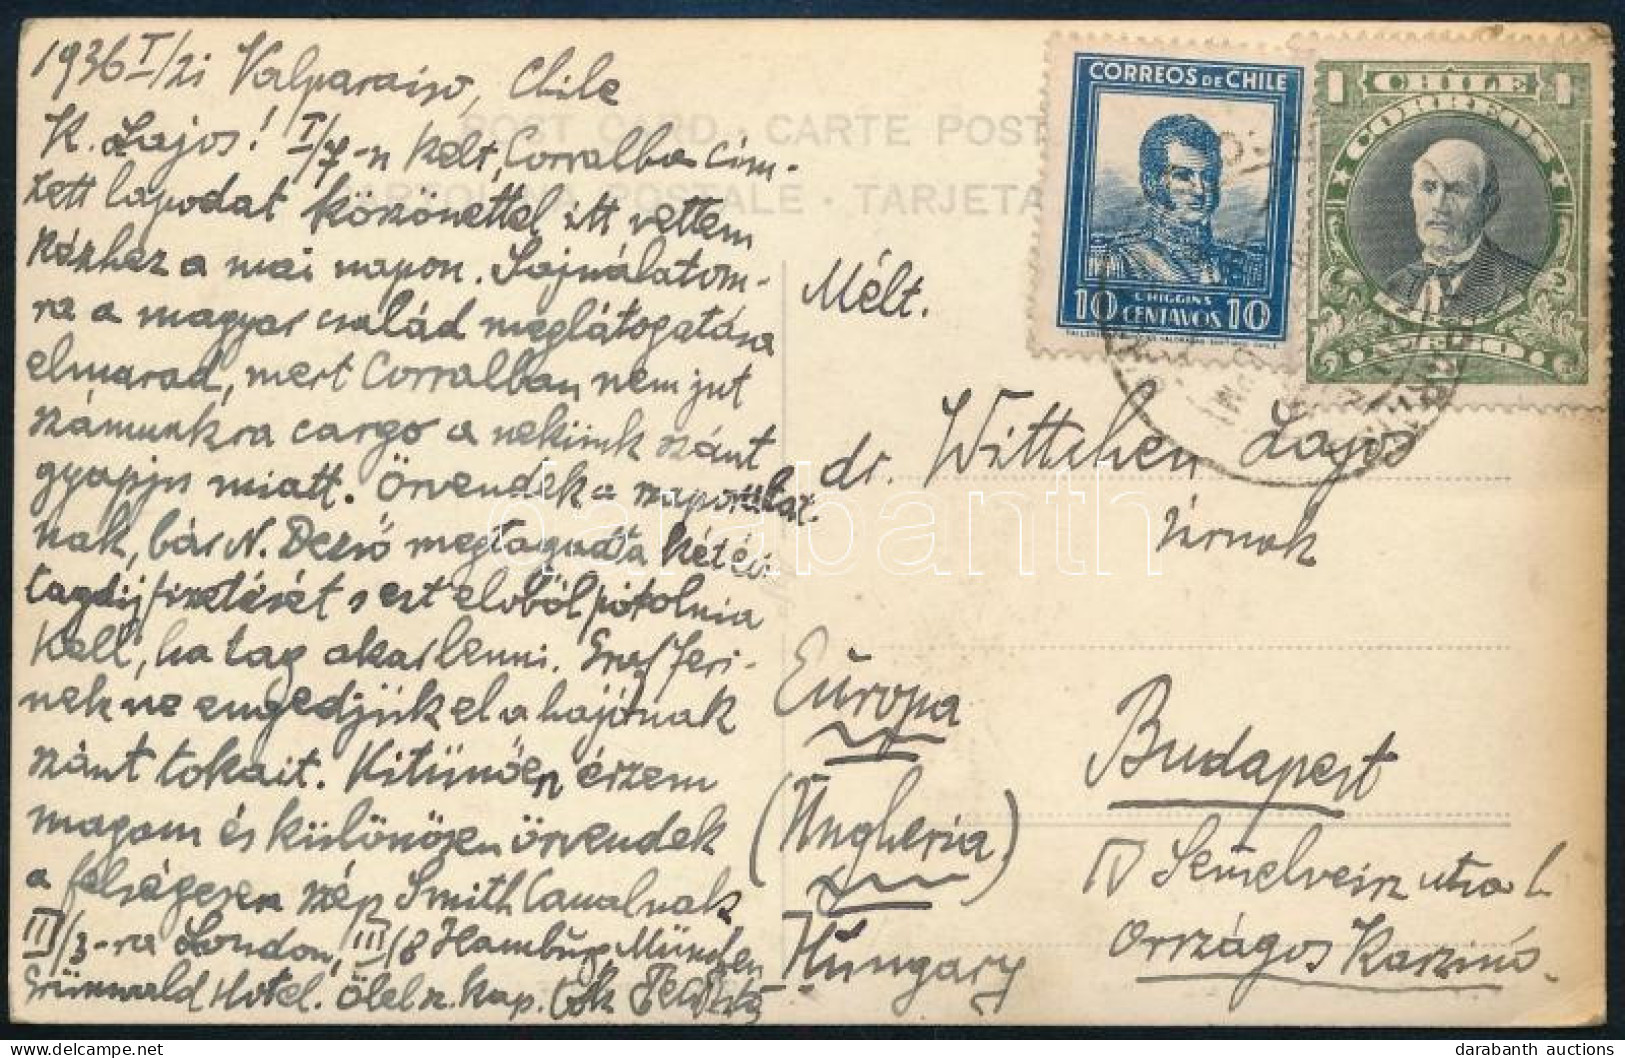 1936 I/21 Valparaiso, Chile
K. Lajos! I/7-n kelt, Corralba cím-
zett lapodat köszönettel itt vettem
kézhez a mai napon. Sajnálatom-
ra a magyar család meglátogatása
elmarad, mert Corralban nem jut
számunkra cargo a nekünk szánt
gyapju miatt. Örvendek a szaporulat-
nak, bár N. Dezső megtagadta két évi
tagdíjfizetését s ezt előből pótolnia
kell, ha tag akar lenni. Feri-
nek ne engedjük el a hajónak
szánt tokait. Kitünően érzem
magam és különösen örvendek
a felségesen szép Smith Canalnak
III/3-ra London, III/8 Hamburg, München
Grünwald Hotel. Ölel
POST CARD · CARTE POST
POSTALE · TARJETA
CORREOS DE CHILE
O'HIGGINS
10 CENTAVOS 10
1 CHILE 1
CORREOS
UN PESO
Mélt.
dr. Wittchen Lajos
Úrnak
Európa
Budapest
(Ungheria)
IV Semelweisz utca 1.
Hungary
Országos Kaszinó.
darabanth
darabanth auctions